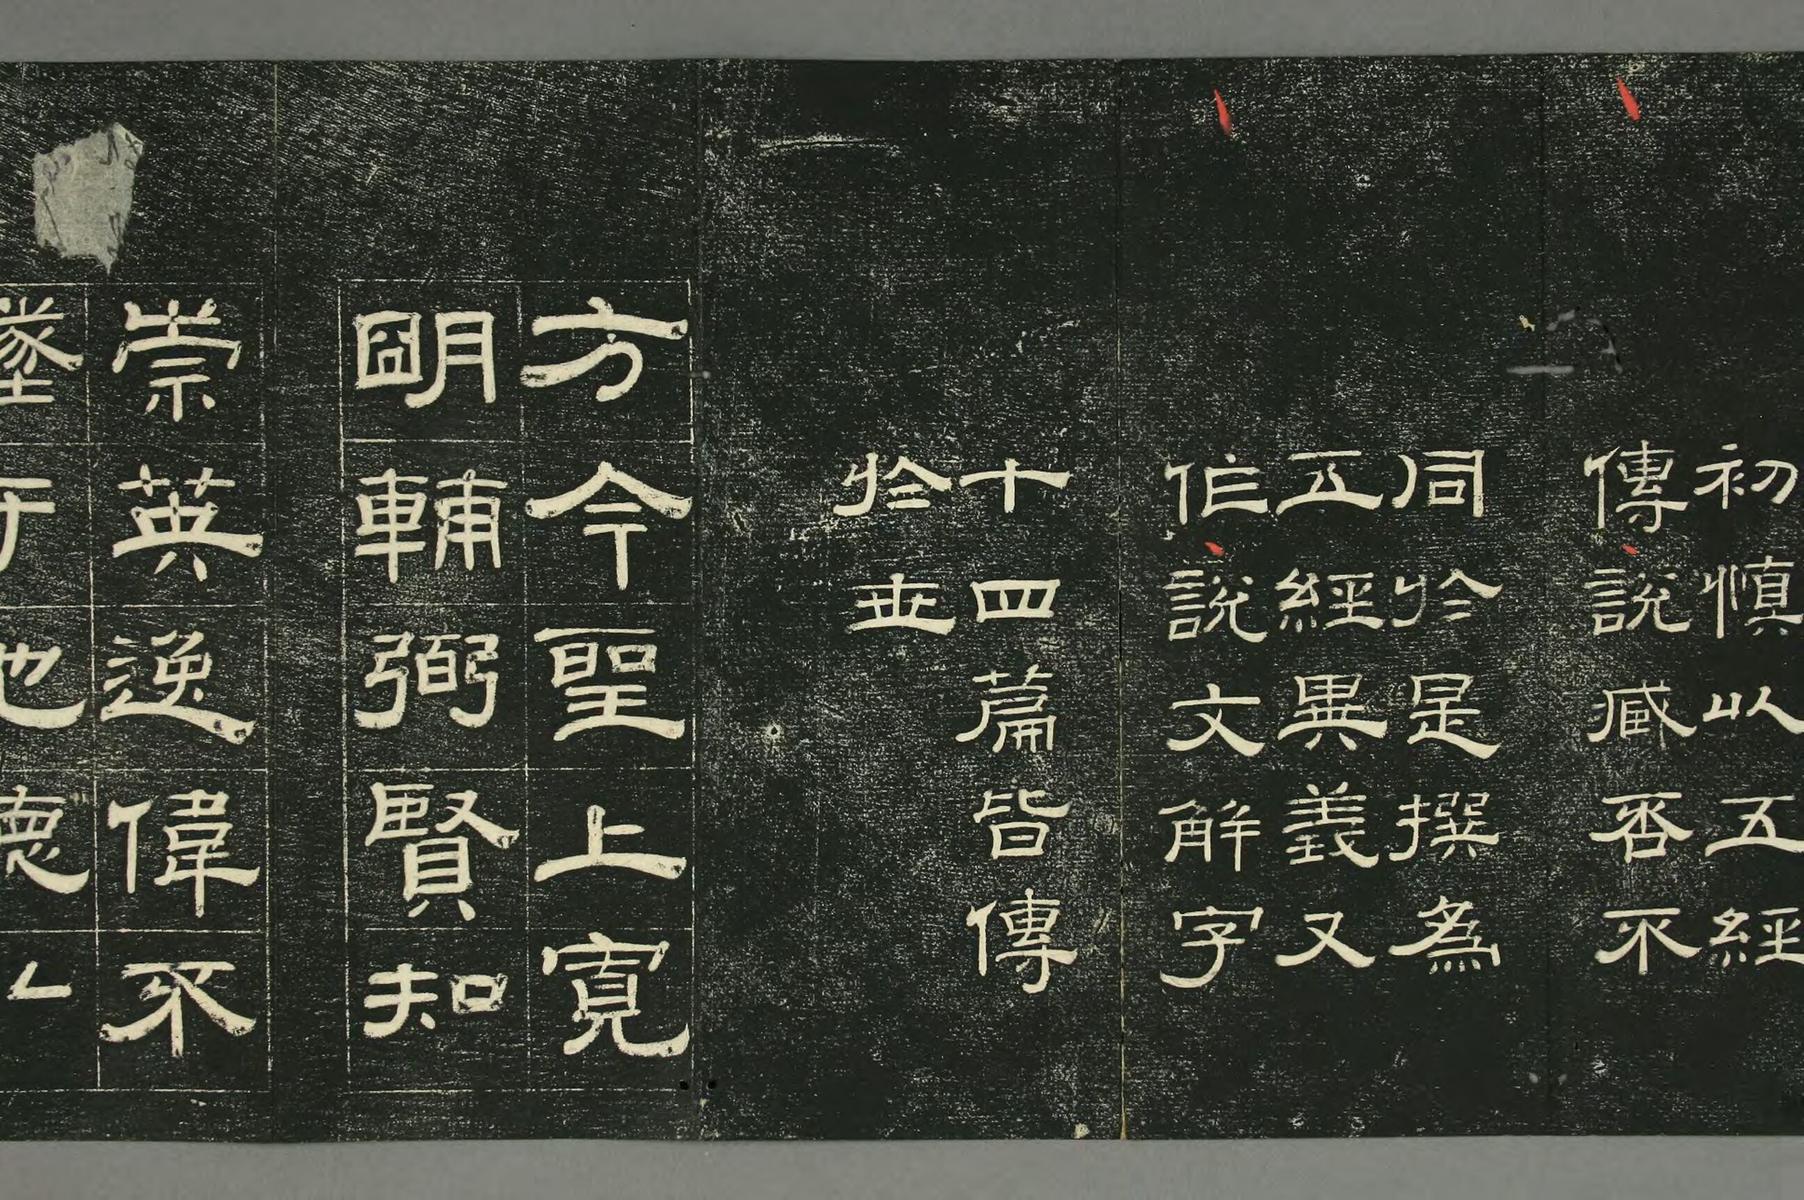 初慎以五經
傳說臧否不
同於是撰為
五經異義又
作說文解字
十四篇皆傳
於世
方今聖上寬
明輔弼賢知
崇英逸偉不
墜于地德